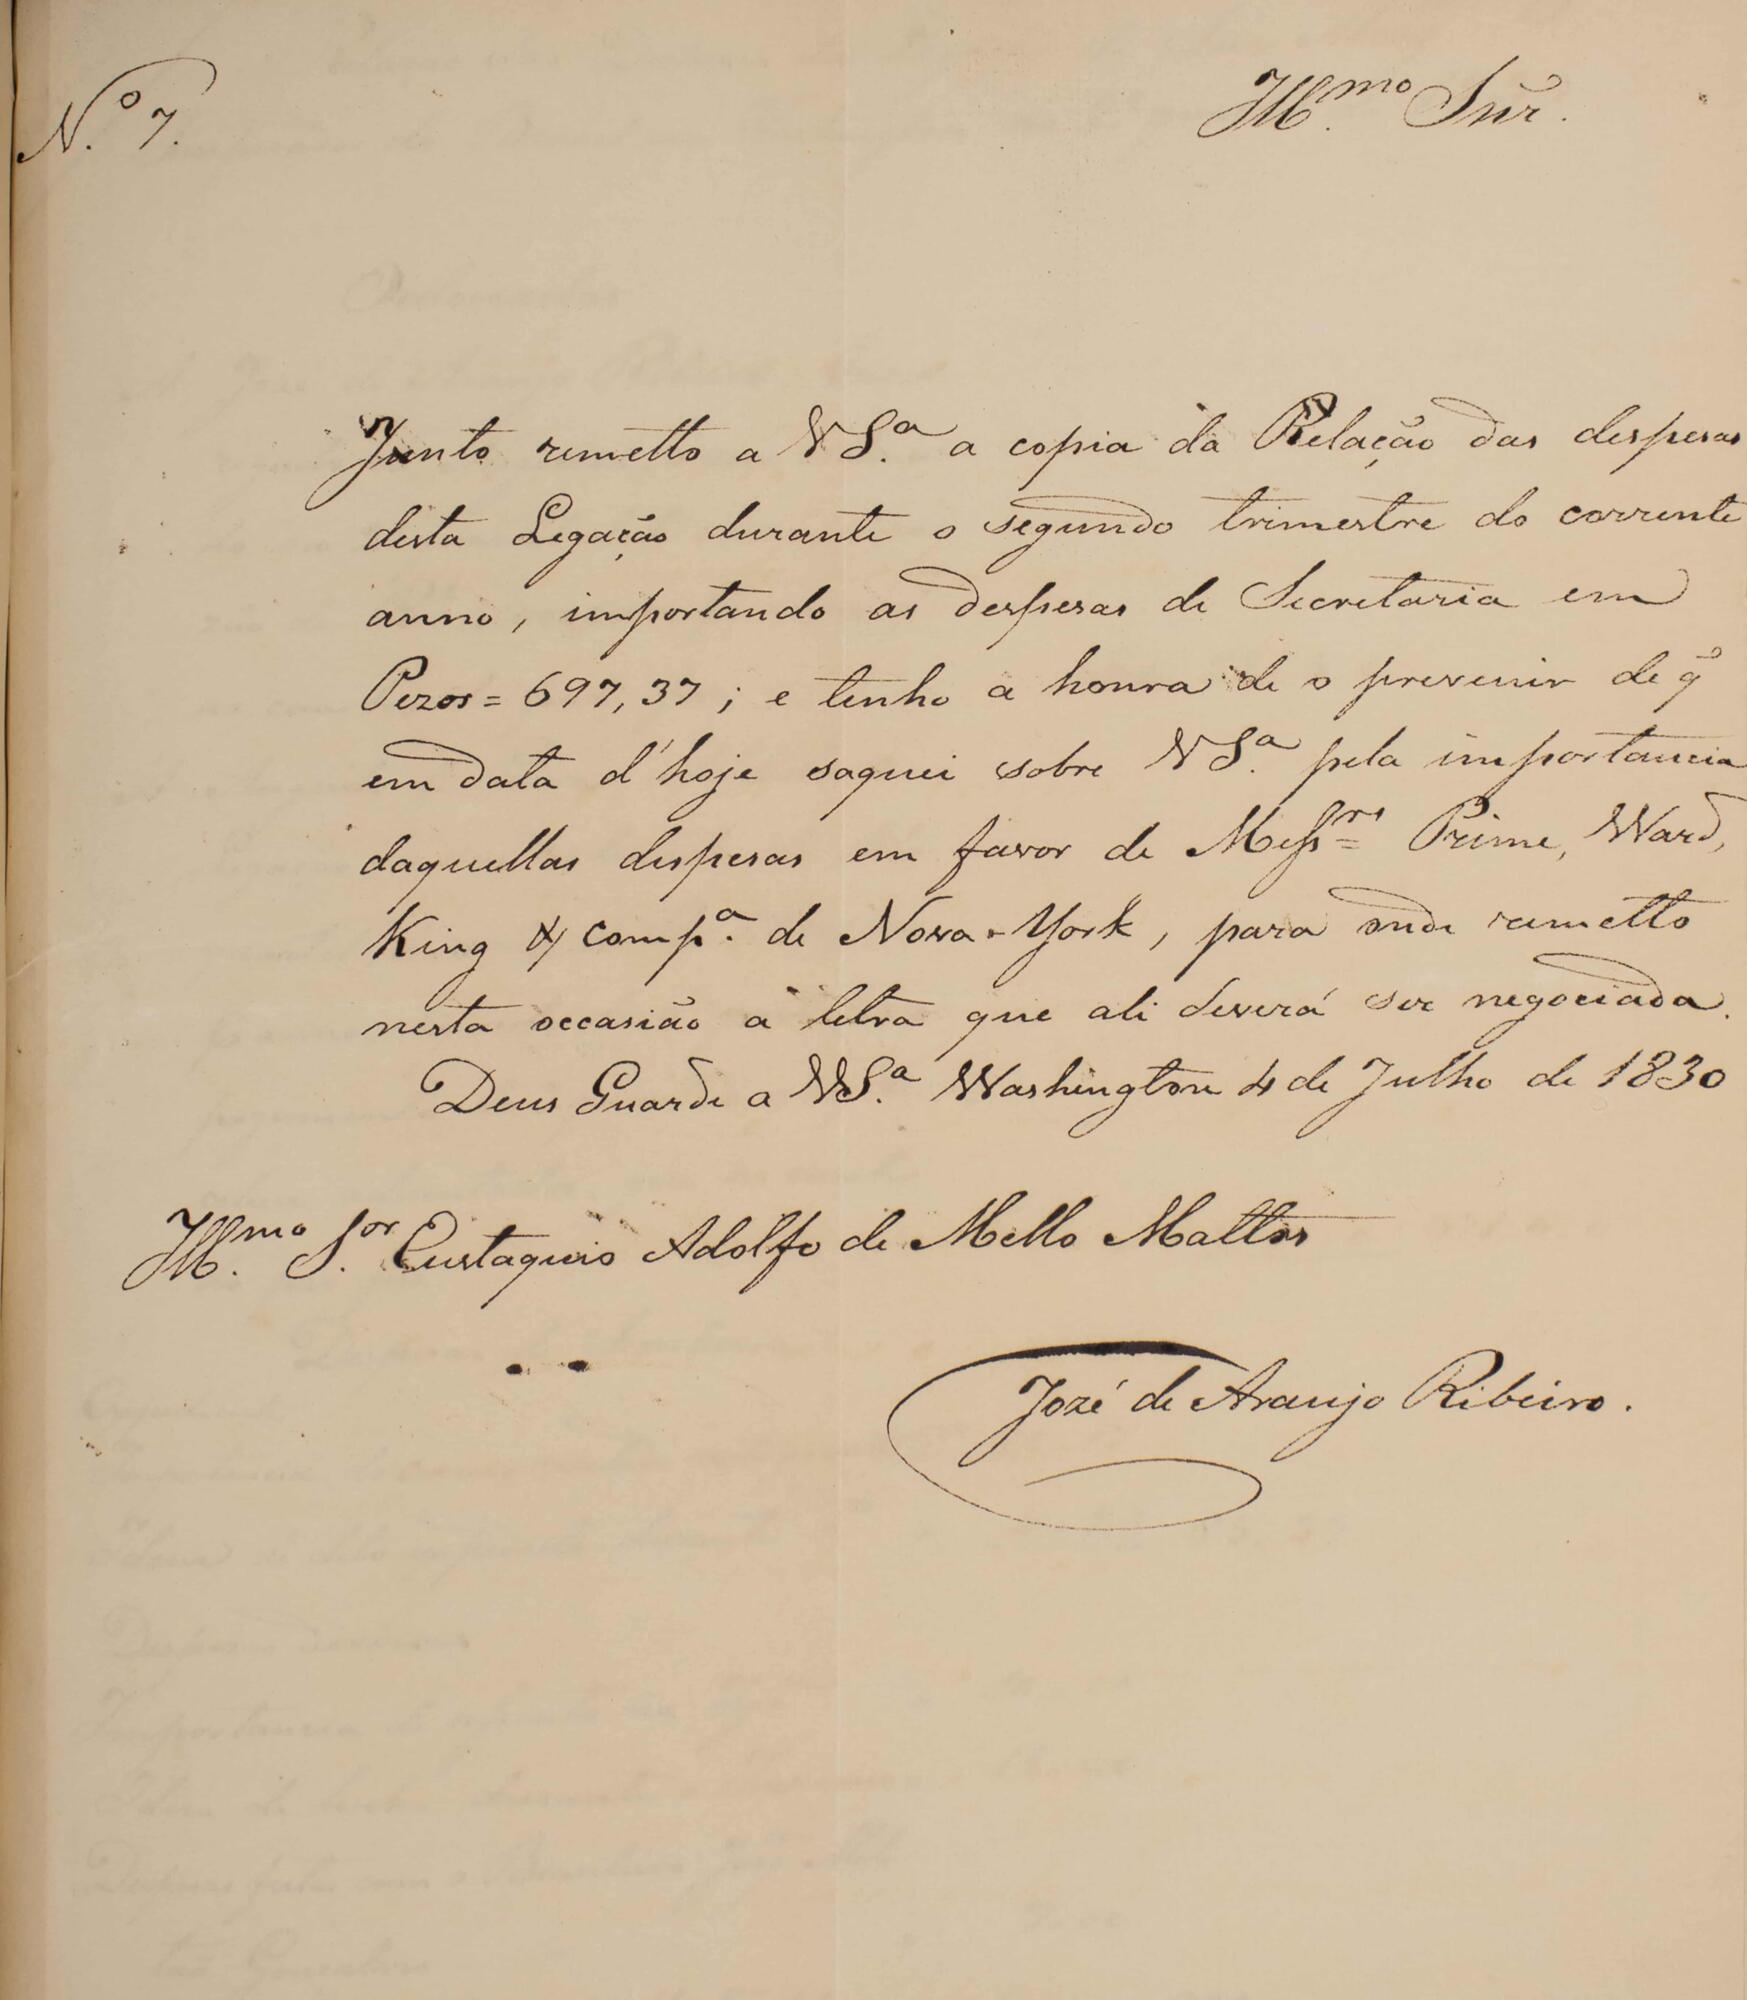 N.º 7.
Ill.mo Snr.
Junto remetto a V S.ª a copia da Relação das despesas
desta Legação durante o segundo trimestre do corrente
anno, importando as despesas de Secretaria em
Pezos = 697,37; e tenho a honra de o prevenir de q̃
em data d'hoje saquei sobre V S.ª pela importancia
daquellas despesas em favor de Mess.rs Prime, Ward,
King & comp.ª de Nova-York, para onde remetto
nesta occasião a letra que ali deverá ser negociada.
Deus Guarde a V S.ª Washington 4 de Julho de 1830
Ill.mo S.or Eustaquio Adolfo de Mello Mattos
Jozé de Araujo Ribeiro.